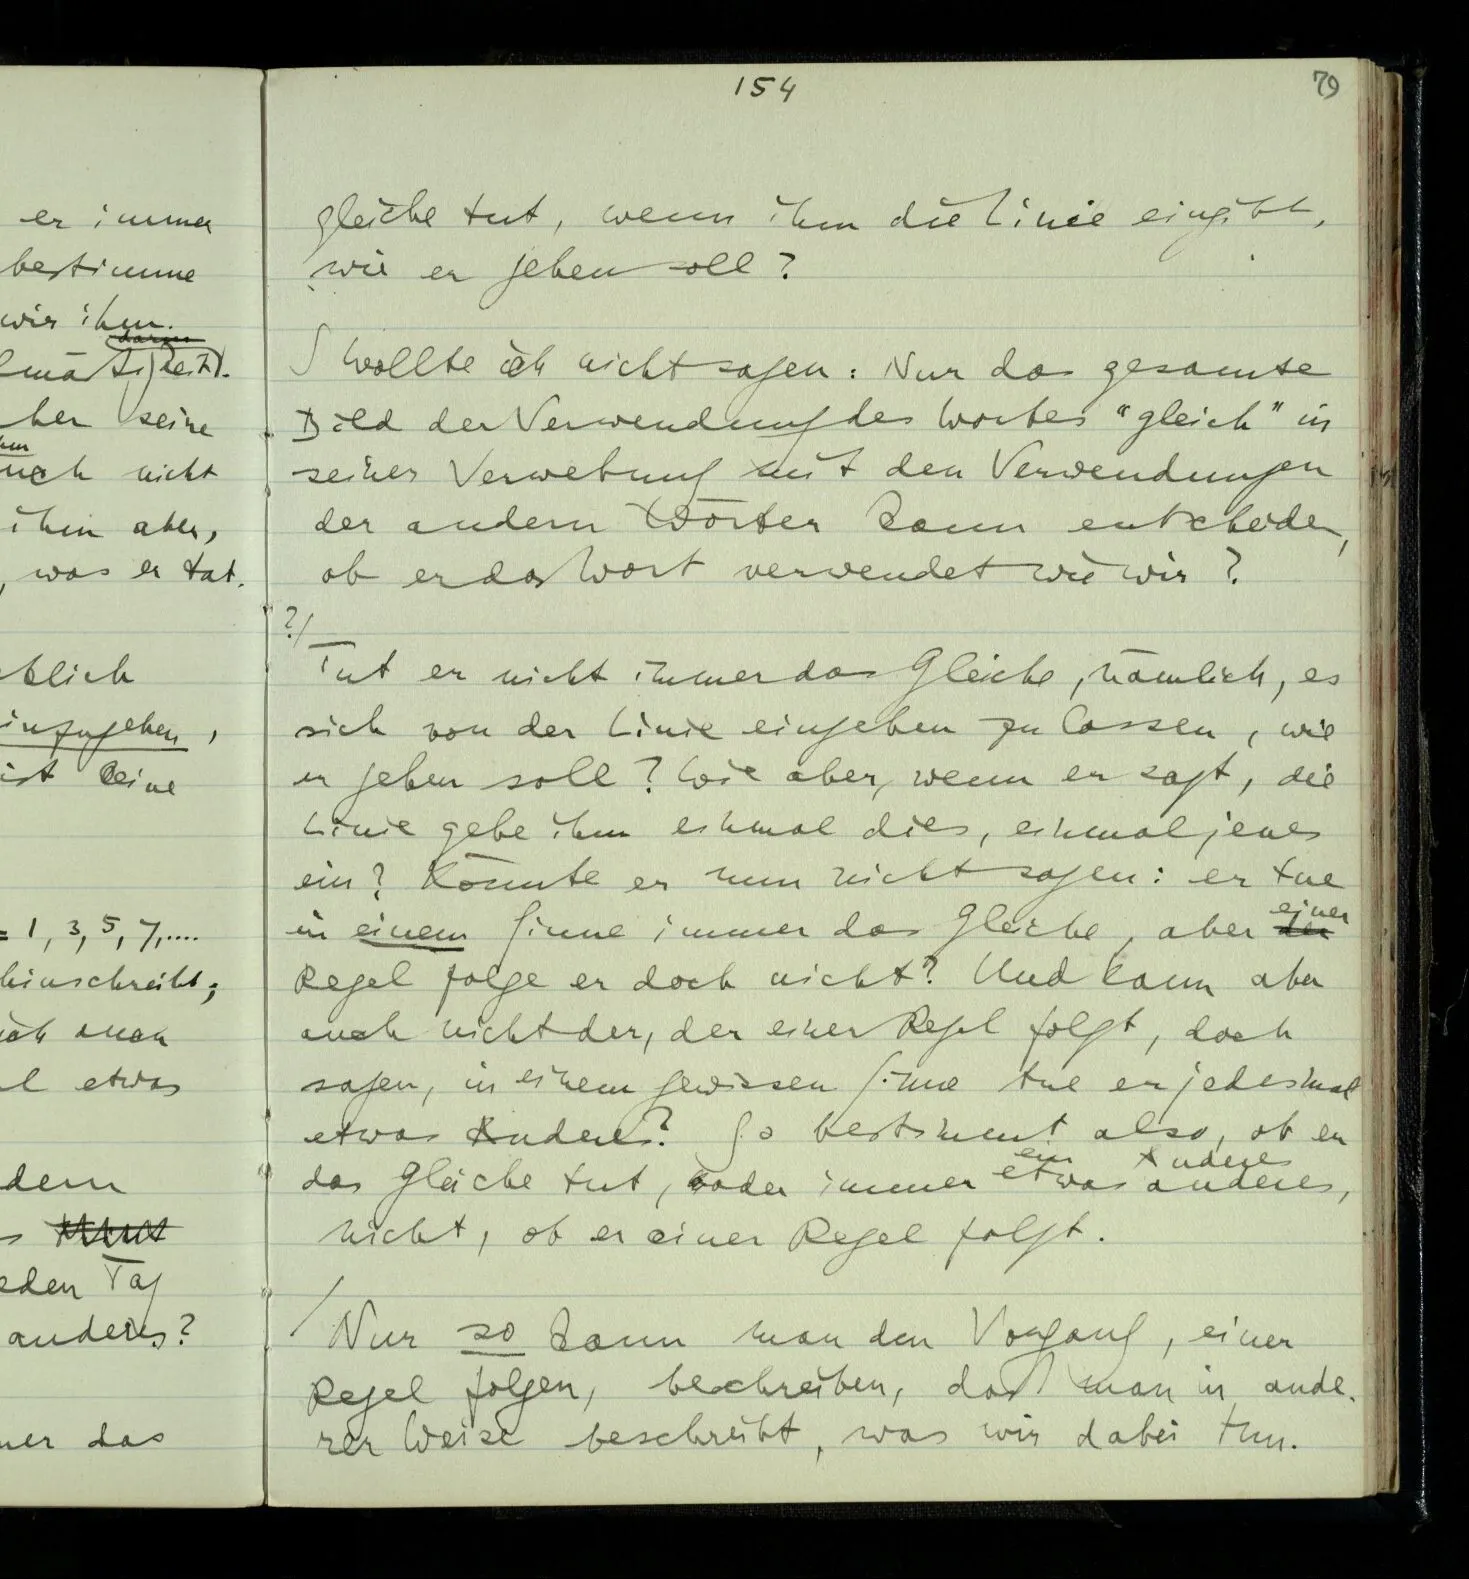 er immer
bestimme
wir ihm.
darum
lmäßigkeit.
her seine
auch nicht
ihm aber,
, was er tat.
blich
einzugeben,
ist keine
= 1, 3, 5, 7,....
hinschreibt;
ich auch
l etwas
dem
eden Tag
anderes?
mer das
154
79
gleiche tut, wenn ihm die Linie eingibt,
wie er gehen soll?
∫ Wollte ich nicht sagen: Nur das gesamte
Bild der Verwendung des Wortes "gleich" in
seiner Verwebung mit den Verwendungen
der andern Wörter kann entscheiden,
ob er das Wort verwendet wie wir?
?/
Tut er nicht immer das Gleiche, nämlich, es
sich von der Linie eingeben zu lassen, wie
er gehen soll? Wie aber, wenn er sagt, die
Linie gebe ihm einmal dies, einmal jenes
ein? Könnte er nun nicht sagen: er tue
in einem Sinne immer das Gleiche, aber der einer
Regel folge er doch nicht? Und kann aber
auch nicht der, der einer Regel folgt, doch
sagen, in einem gewissen Sinne tue er jedesmal
etwas Anderes? So bestimmt also, ob er
ein Anderes
das Gleiche tut, oder immer etwas anderes,
nicht, ob er einer Regel folgt.
/ Nur so kann man den Vorgang, einer
Regel folgen, beschreiben, daß man in ande-
rer Weise beschreibt, was wir dabei tun.